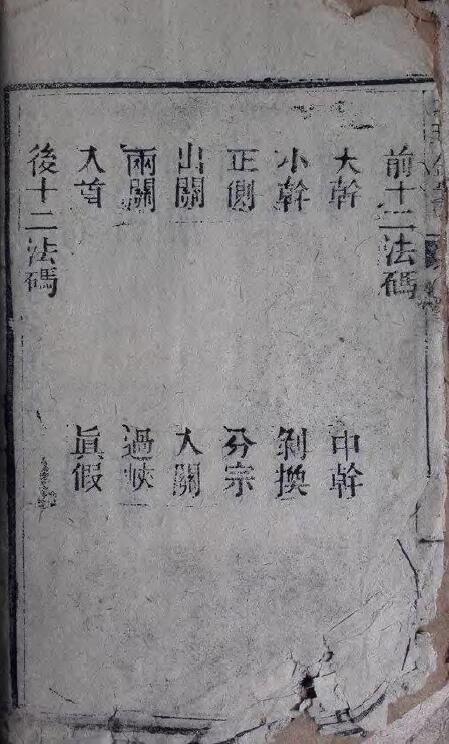 前十二法碼
大幹 中幹
小幹 剝換
正側 分宗
出關 入關
兩關 過峽
入首 眞假
後十二法碼